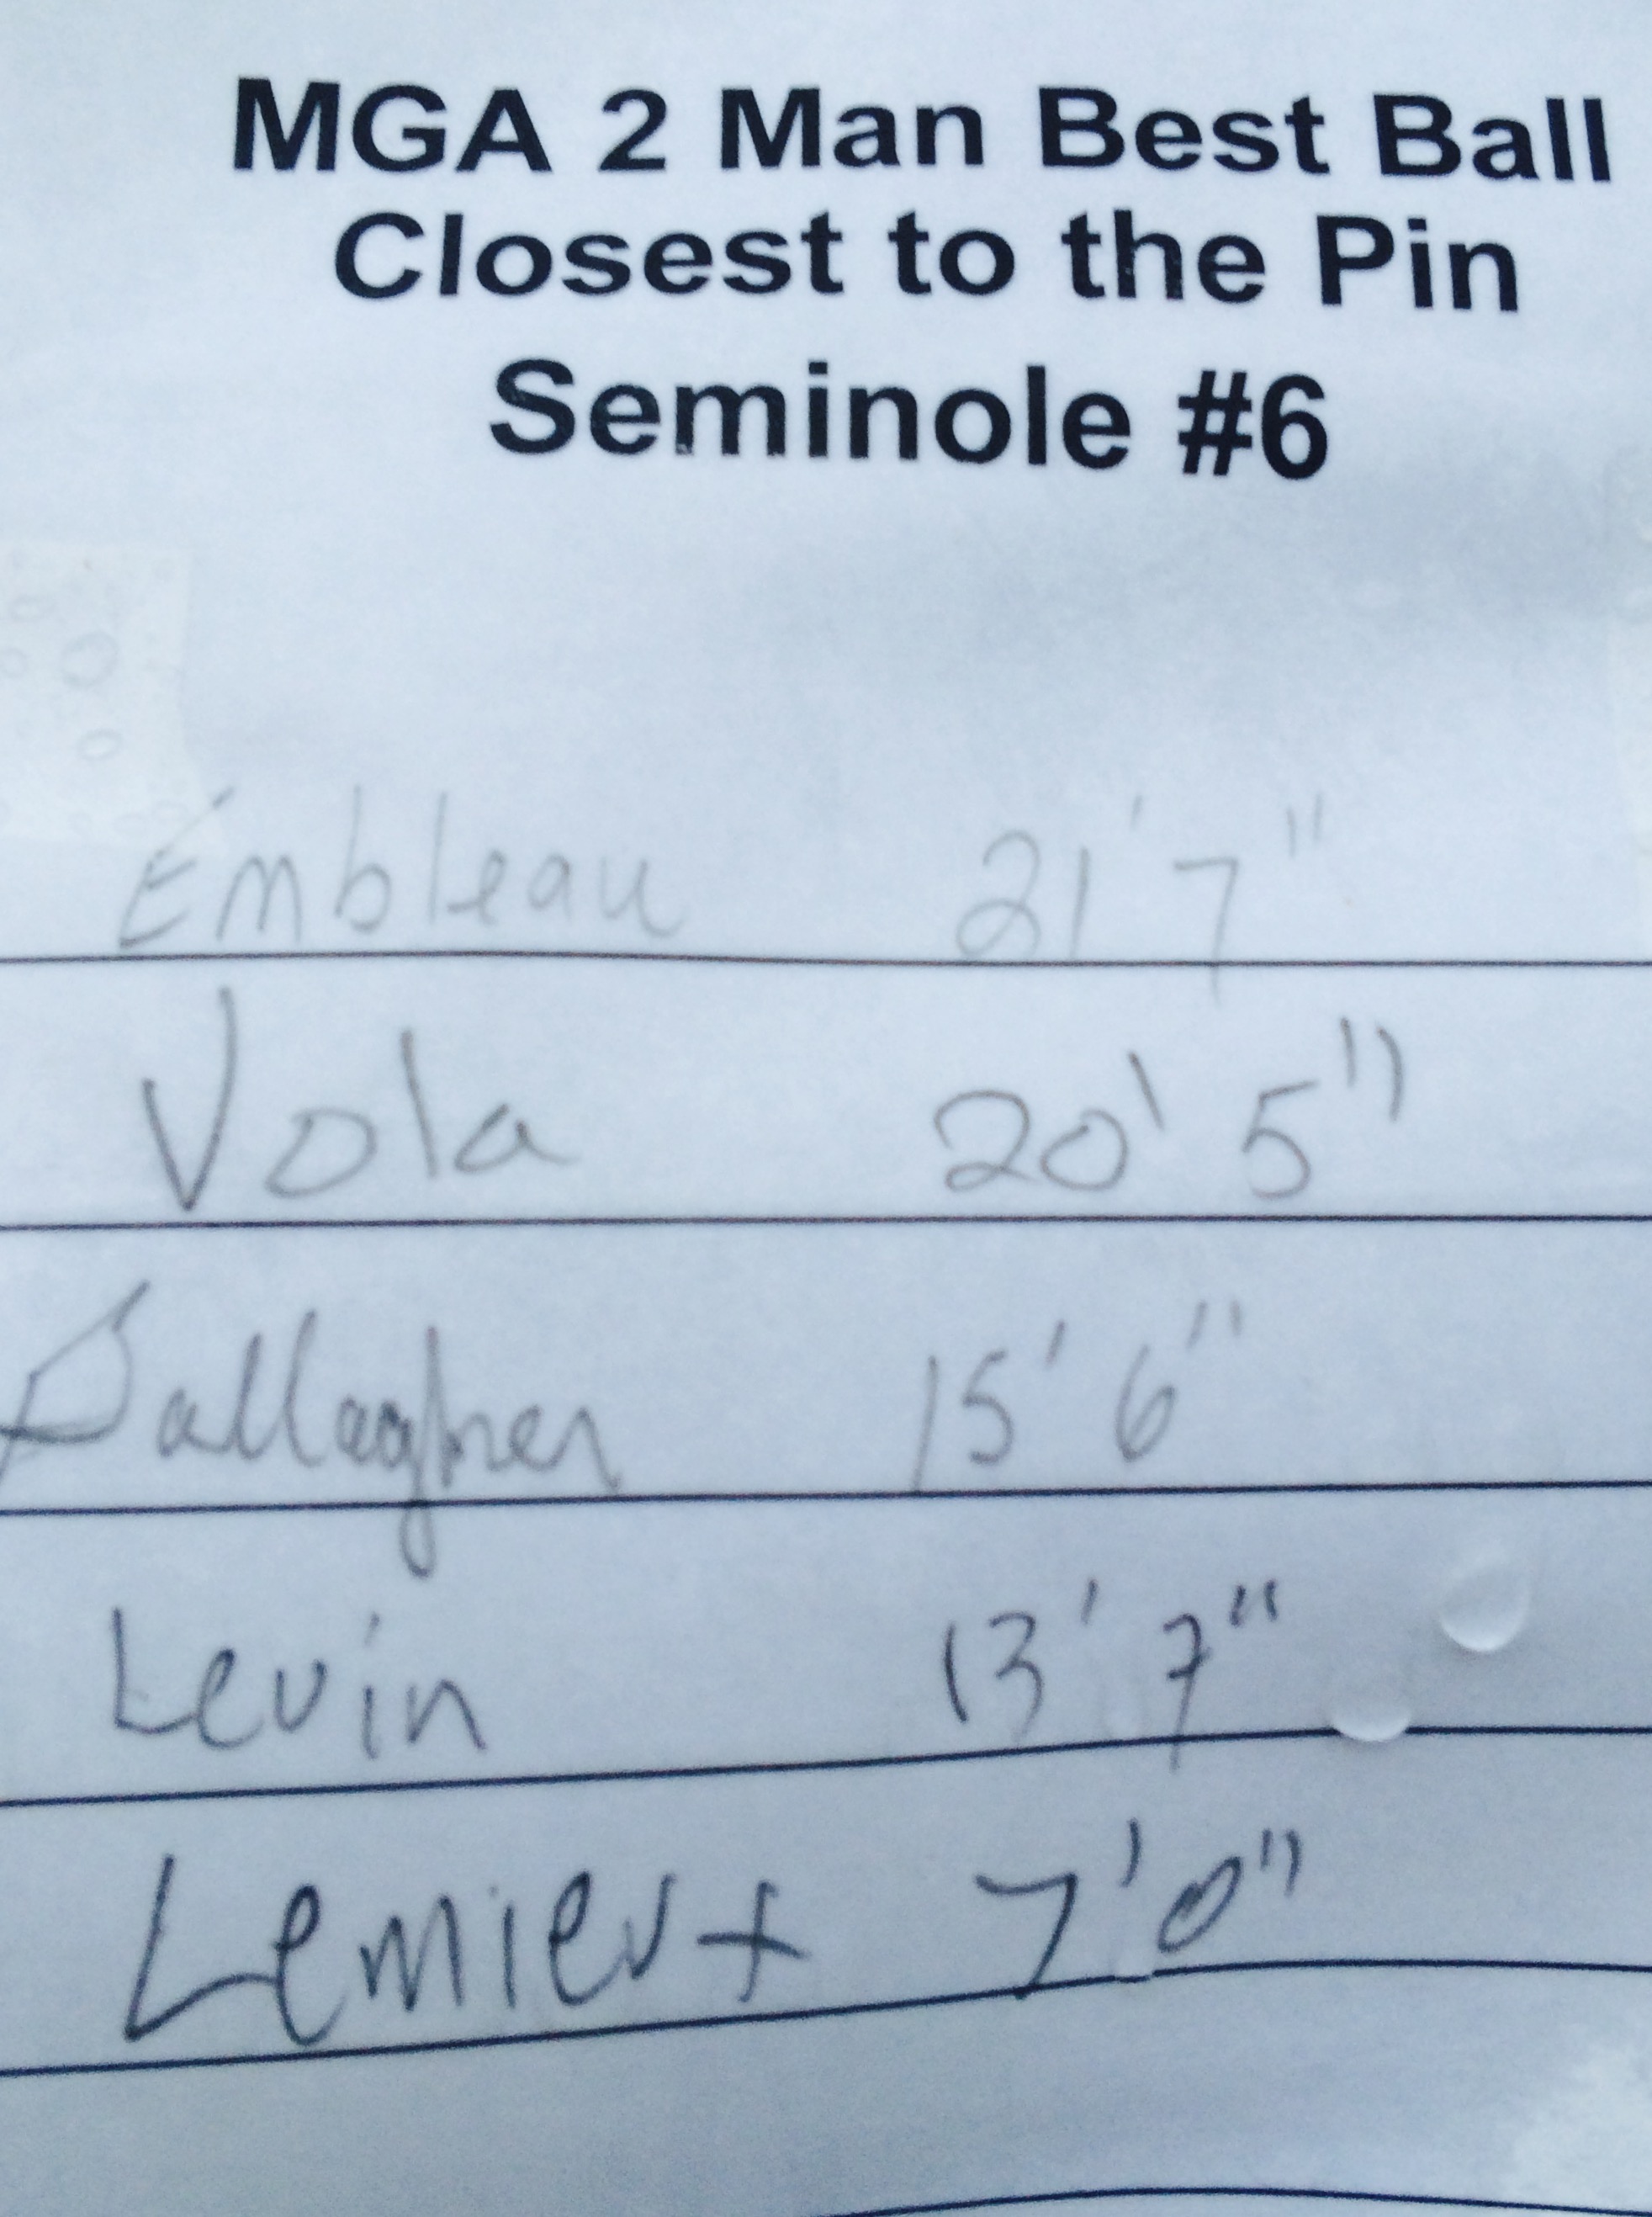 MGA 2 Man Best Ball
Closest to the Pin
Seminole #6
Embleau 21'7"
Vola 20' 5"
Gallagher 15' 6"
Levin 13' 7"
Lemieux 7'0"